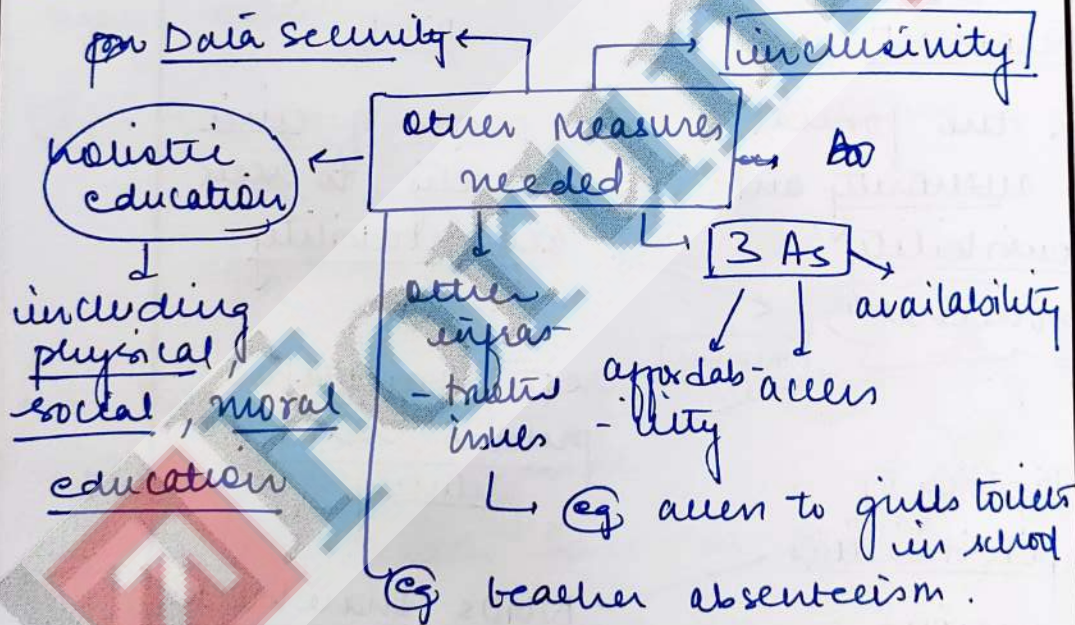 Data Security
inclusivity
other measures
needed
holistic
education
3 As
including
physical,
social, moral
education
other
infras-
issues
affordab-
-ility
access
availability
eg access to girls toilets
in school
eg teacher absenteeism.
Forum